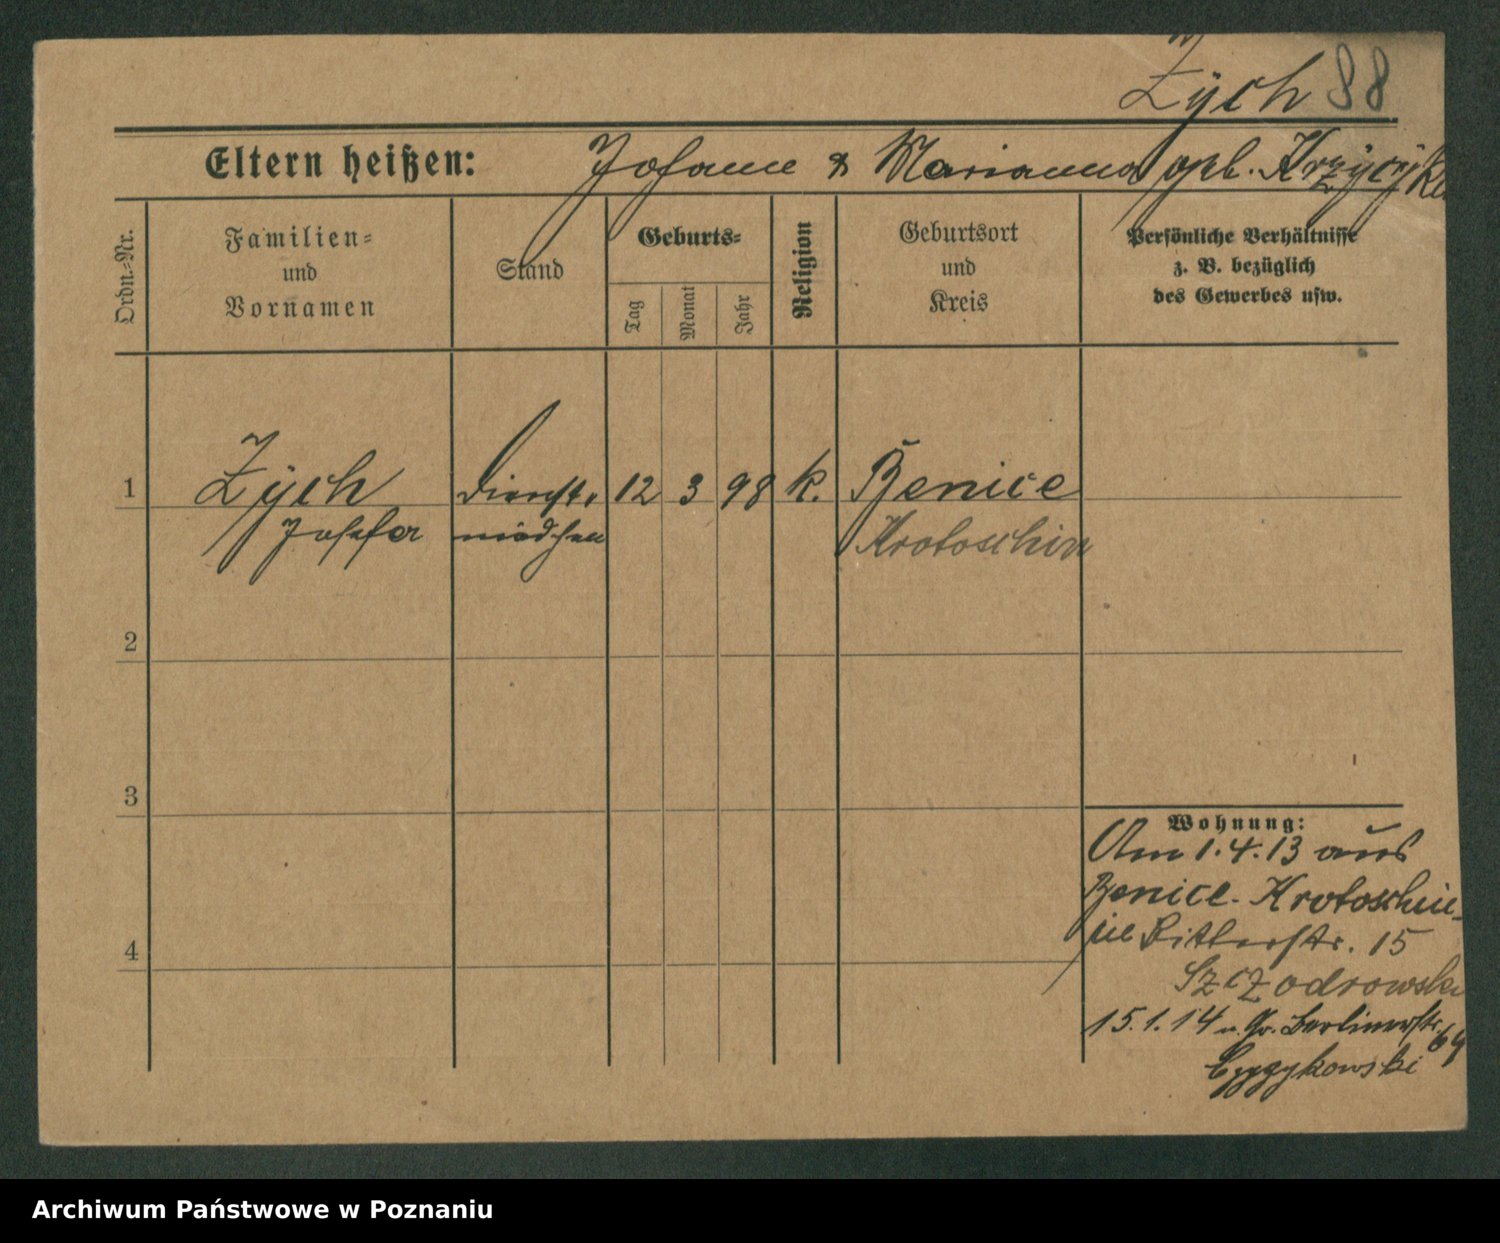 Zÿch 88
Eltern heißen: Johann & Marianna geb.
Ordn.=Nr.
Familien=
und
Vornamen
Stand
Geburts=
Tag
Monat
Jahr
Religion
Geburtsort
und
Kreis
Persönliche Verhältnisse
z. B. bezüglich
des Gewerbes usw.
1 Zÿch Dienst- 12 3 98 k. Benice
Josefa mädchen Krotoschin
2
3
4
Wohnung:
Am 1.4.13 aus
Benice-Krotoschin
Ritterstr. 15
Szczodrowski
15.1.14 n. Gr. Berlinerstr. 69
Archiwum Państwowe w Poznaniu